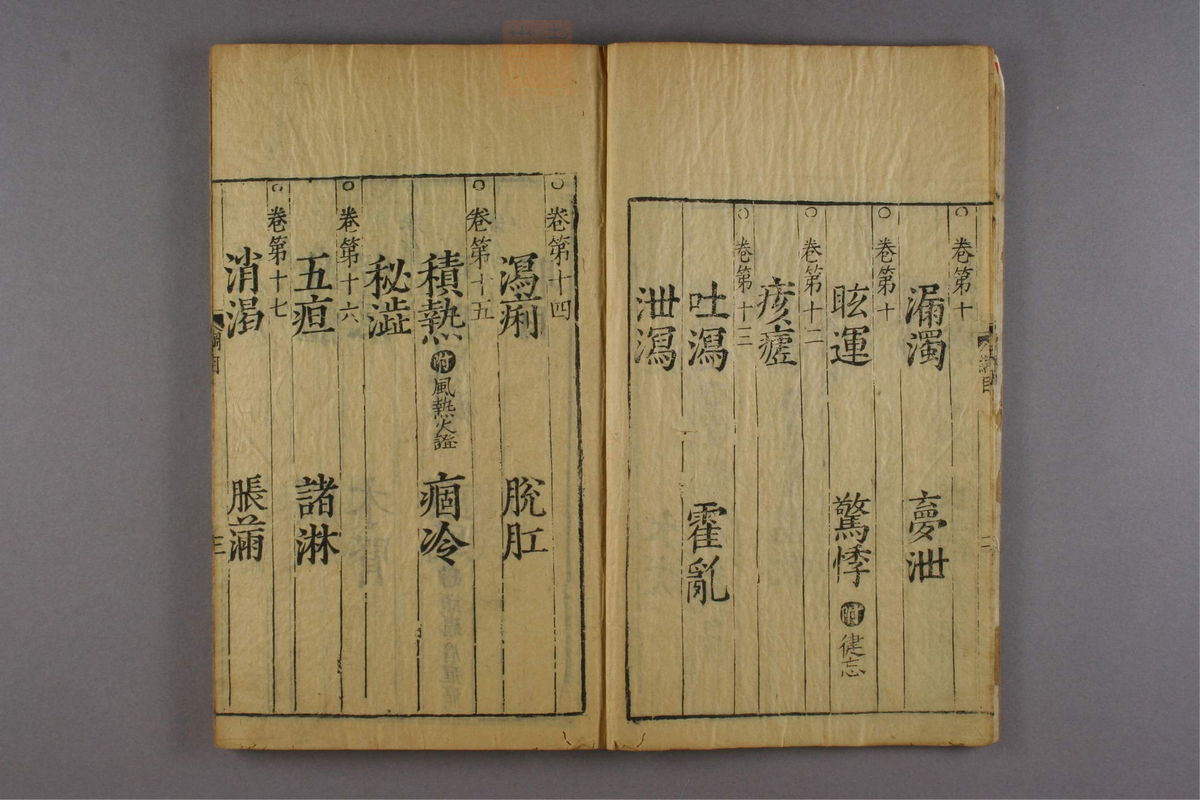 卷第十
漏濁 夢泄
卷第十
眩運 驚悸 附 徤忘
卷第十二
痎瘧
卷第十三
吐瀉 霍亂
泄瀉
綱目
卷第十四
瀉痢 脫肛
卷第十五
積熱 附 風熱火證 痼冷
秘澁
卷第十六
五疸 諸淋
卷第十七
消渴 脹滿
三